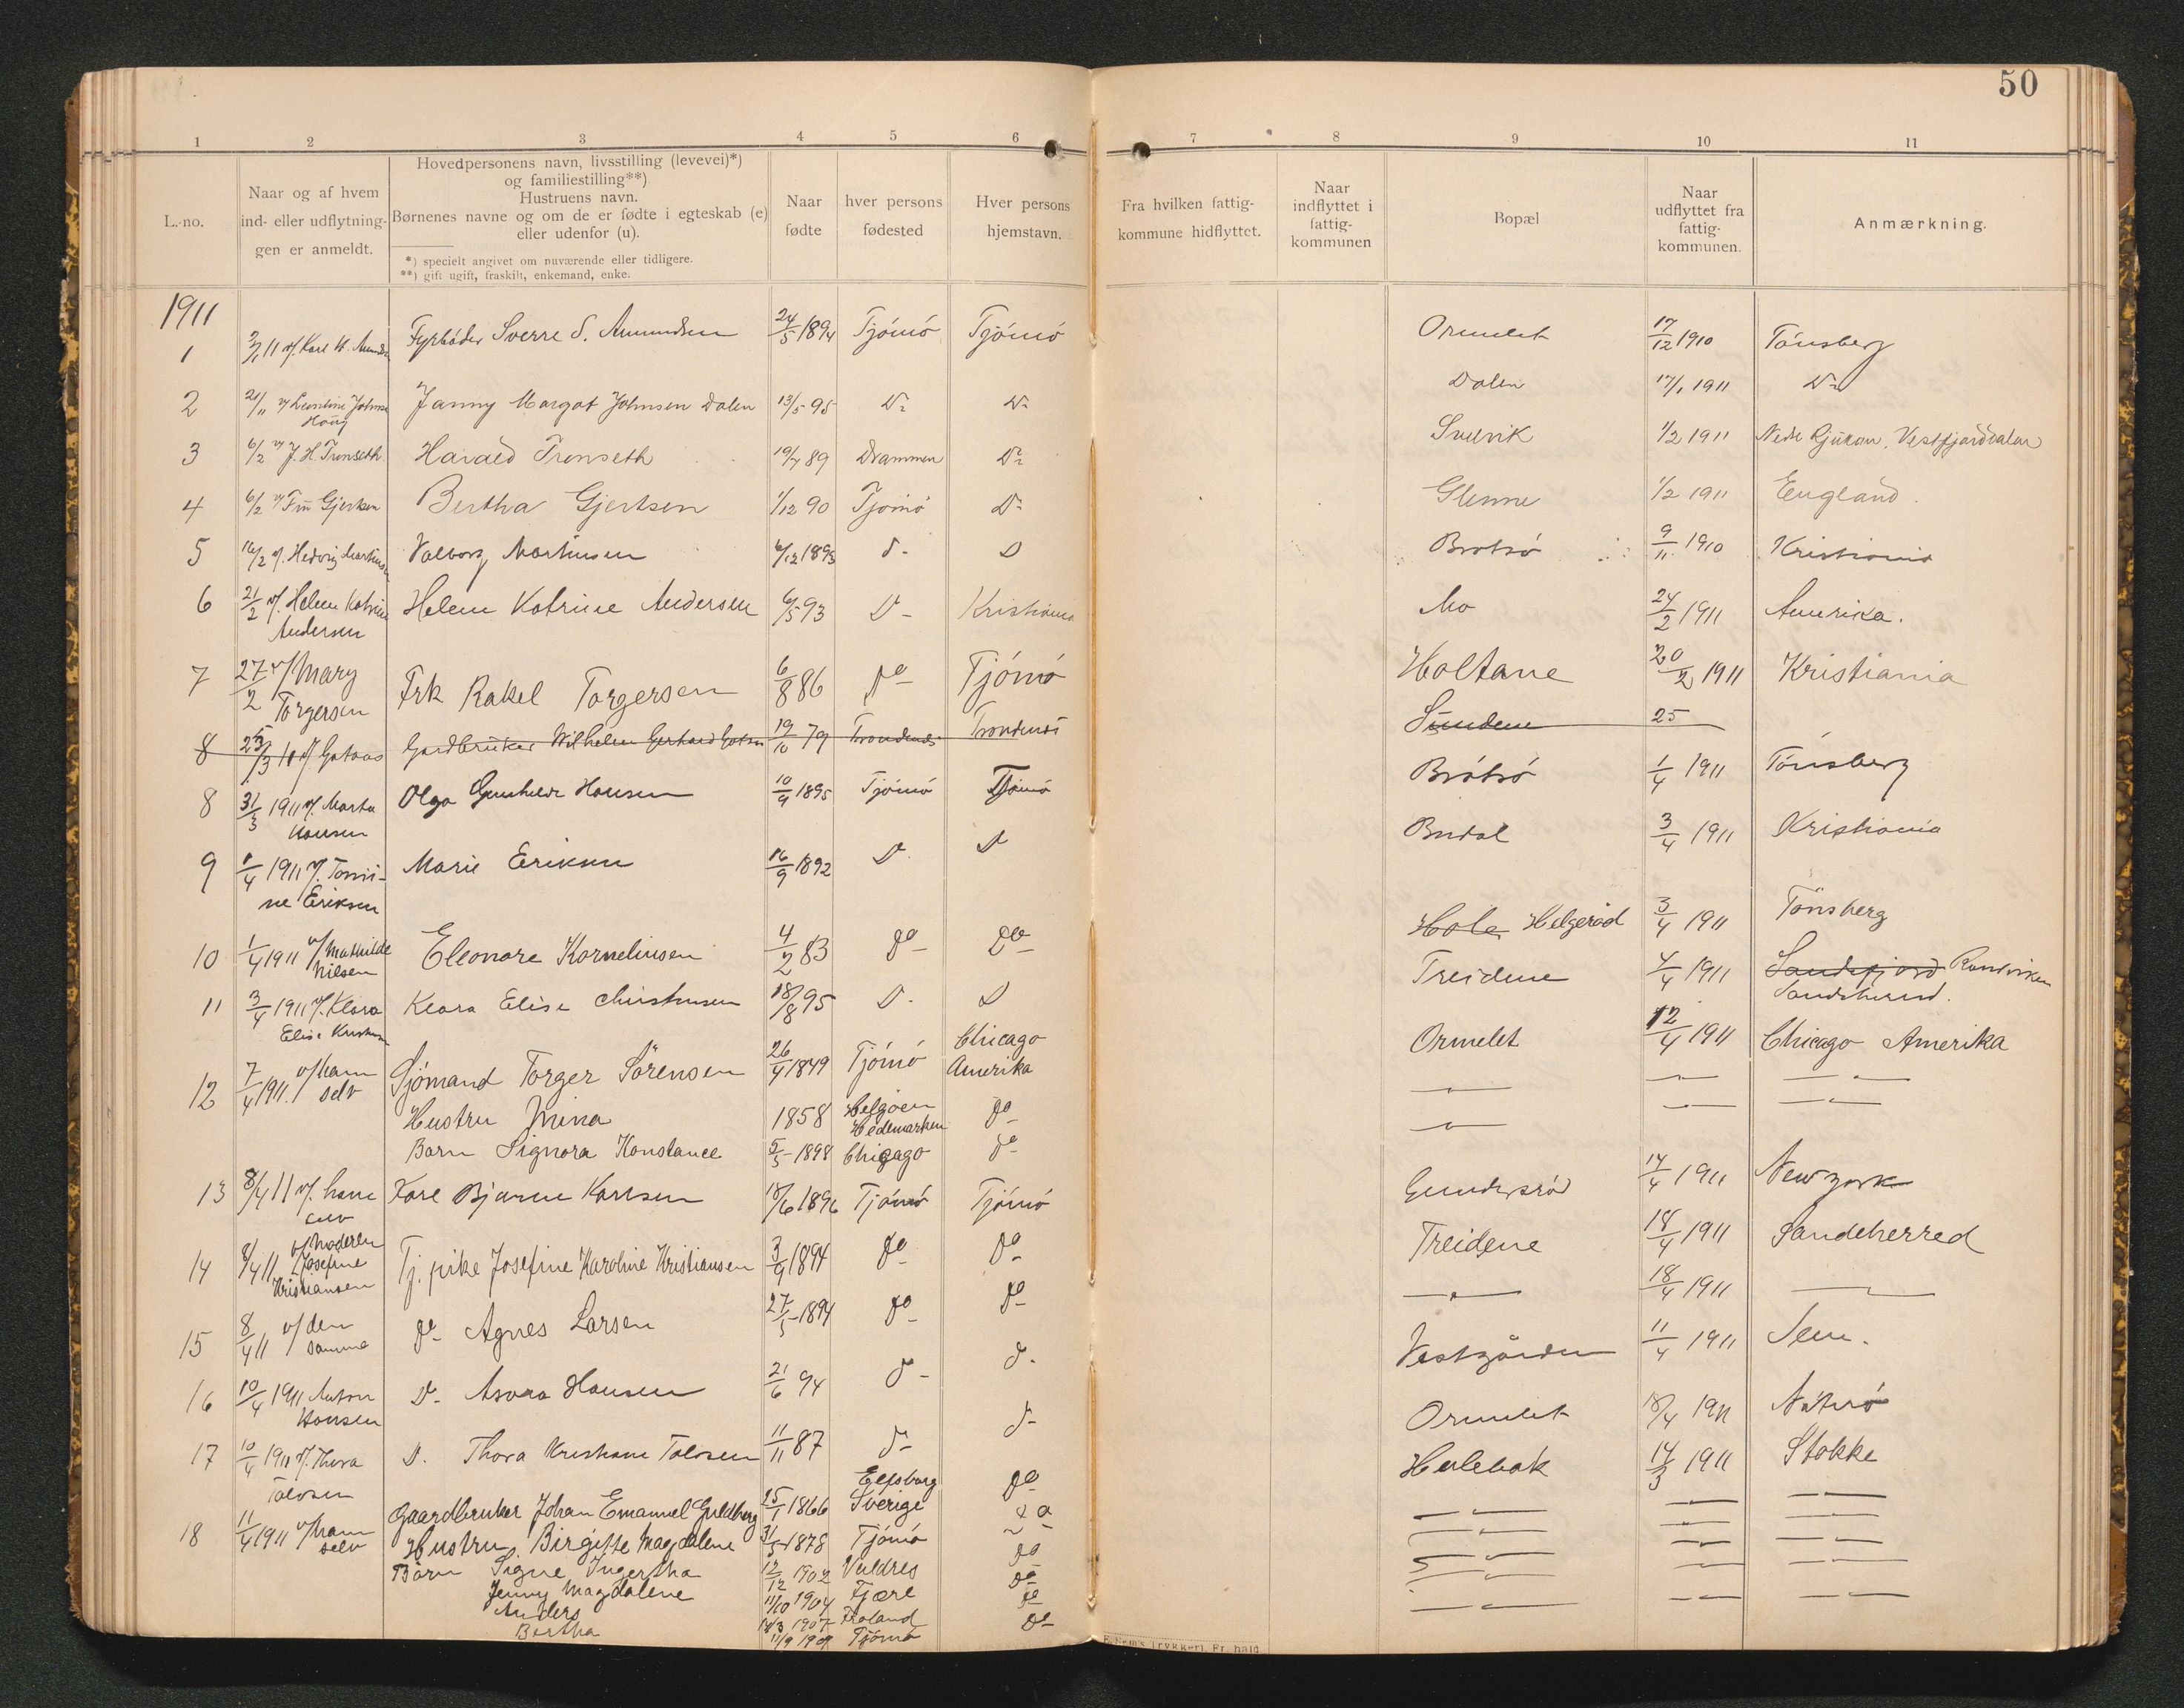 50
1 2 3 4 5 6 7 8 9 10 11
L.-no.
Naar og af hvem
ind- eller udflytnin-
gen er anmeldt.
Hovedpersonens navn, livsstilling (levevei)*)
og familiestilling**)
Hustruens navn.
Børnenes navne og om de er fødte i egteskab (e)
eller udenfor (u).
*) specielt angivet om nuværende eller tidligere.
**) gift ugift, fraskilt, enkemand, enke.
Naar
fødte
hver persons
fødested
Hver persons
hjemstavn.
Fra hvilken fattig-
kommune hidflyttet.
Naar
indflyttet i
fattig-
kommunen
Bopæl
Naar
udflyttet fra
fattig-
kommunen.
Anmærkning.
1911
1 Fyrbøder Sverre S. Amundsen 24/5 1894 Tjömö Tjömö Ormelet 17/12 1910 Tönsberg
2 21/1 Leontine Johnsen Janny Margot Johnsen Dalen 13/5 95 Do Do Dalen 17/1 1911 Do
3 6/2 v/ J. H. Tronseth Harald Tronseth 19/7 89 Drammen Do 1/2 1911 Rjukan, Vestfjorddalen
4 6/2 v/ Gjertsen Bertha Gjertsen 1/12 90 Tjömö Do Glenne 1/2 1911 England
5 16/2 v/ Hedvig Martinsen Valborg Martinsen 6/12 1893 d- D Brotsö 9/11 1910 Kristiania
6 21/2 v/ Helene Katrine
Andersen Helene Katrine Andersen 6/5 93 D- Kristiania Mo 24/2 1911 Amerika.
7 27/2 v/ Mary
Torgersen Frk Rakel Torgersen 6/8 86 do Tjömö Holtane 20/2 1911 Kristiania
8 v/ Gotaas Gardbruker Wilhelm Gerhard 19/10 79 Trondenes Trondenes Sundene 25
8 31/3 1911 v/ Marta
Hansen Olga Gunhilde Hansen 10/9 1895 Tjömö Tjömö Brötsö 1/4 1911 Tönsberg
9 1/4 1911 v/ Tomi-
ne Eriksen Marie Eriksen 16/9 1892 D D Budal 3/4 1911 Kristiania
10 1/4 1911 v/ Mathilde
Nilsen Eleonore Kornelinsen 4/2 83 do do Hola Helgeröd 3/4 1911 Tönsberg
11 3/4 1911 v/ Klara
Elise Klara Elise Christensen 18/8 95 D. D Treidene 4/4 1911 Sandefjord
12 7/4 1911 v/ ham
selv Sjömand Torger Sörensen 26/4 1849 Tjömö Chicago
Amerika Ormelet 12/4 1911 Chicago Amerika
Hustru Mina 1858 Helgöen
Hedemarken do
Barn Signora Konstance 5/5 1898 Chicago do
13 8/4 11 v/ ham
selv Karl Bjarne Karlsen 18/6 1896 Tjömö Tjömö 14/4 1911 New york
14 8/4 11 v/ Moderen
Josefine
Kristiansen Tj. pike Josefine Karoline Kristiansen 3/9 1894 do do Treidene 18/4 1911 Sandeherred
15 8/4 11 v/ den
samme do Agnes Larsen 27/5 1894 do do 18/4 1911
16 10/4 1911 Anton
Hansen D. Asora Hansen 21/6 94 d- d. Vestgården 11/4 1911 Sem.
17 10/4 1911 v/ Thora
D. Thora Kristiane 11/11 87 d- d- Ormelet 18/4 1911 Nøterö
18 11/4 1911 v/ ham
selv Gaardbruker Johan Emanuel Guldberg 25/1 1866 Elfsborg
Sverige do 14/3 1911 Stokke
Hustru Birgitte Magdalene 31/5 1878 Tjömö do
Börn Signe Ingertha 12/12 1902 Valdres do
Jenny Magdalene 11/10 1904 Fjære do
Anders 1907 Froland do
Bertha 11/9 1909 Tjömö do